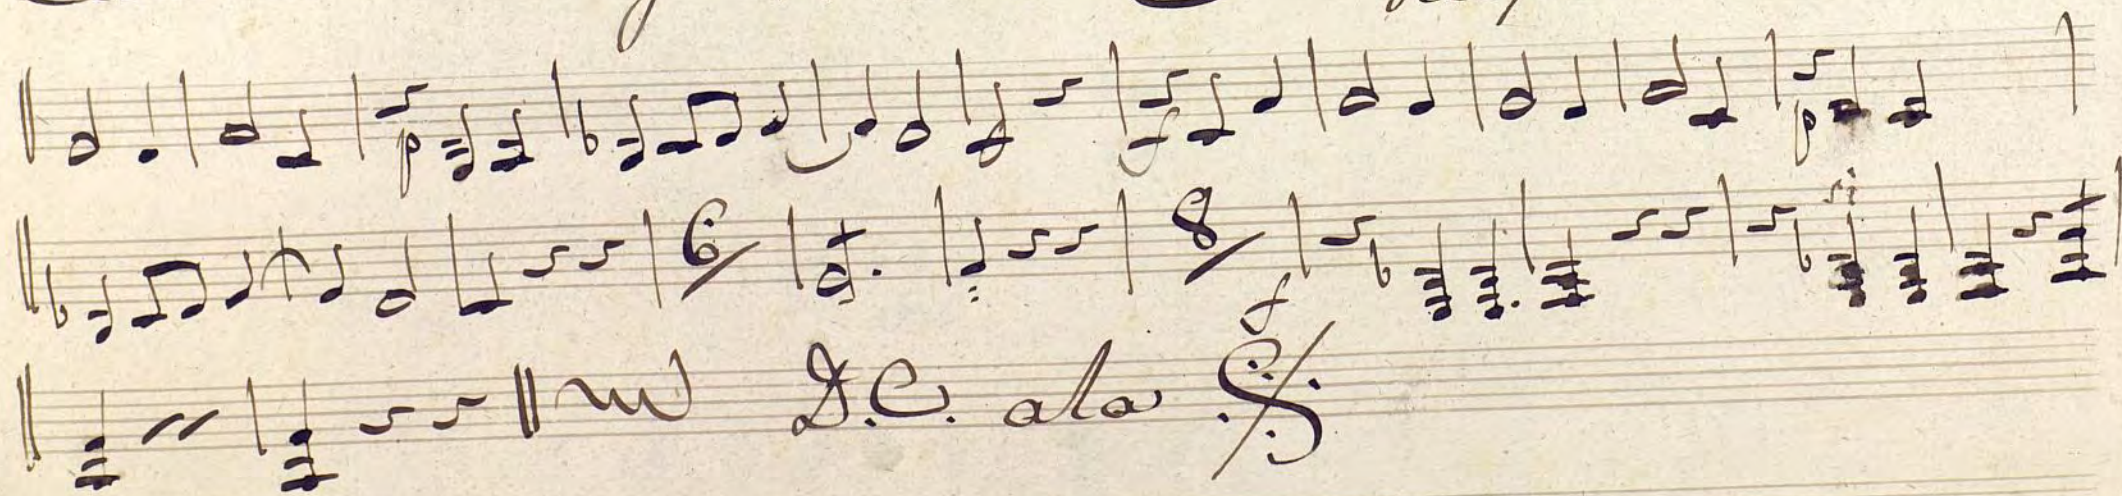 p f p
6 8
f
D.C. ala